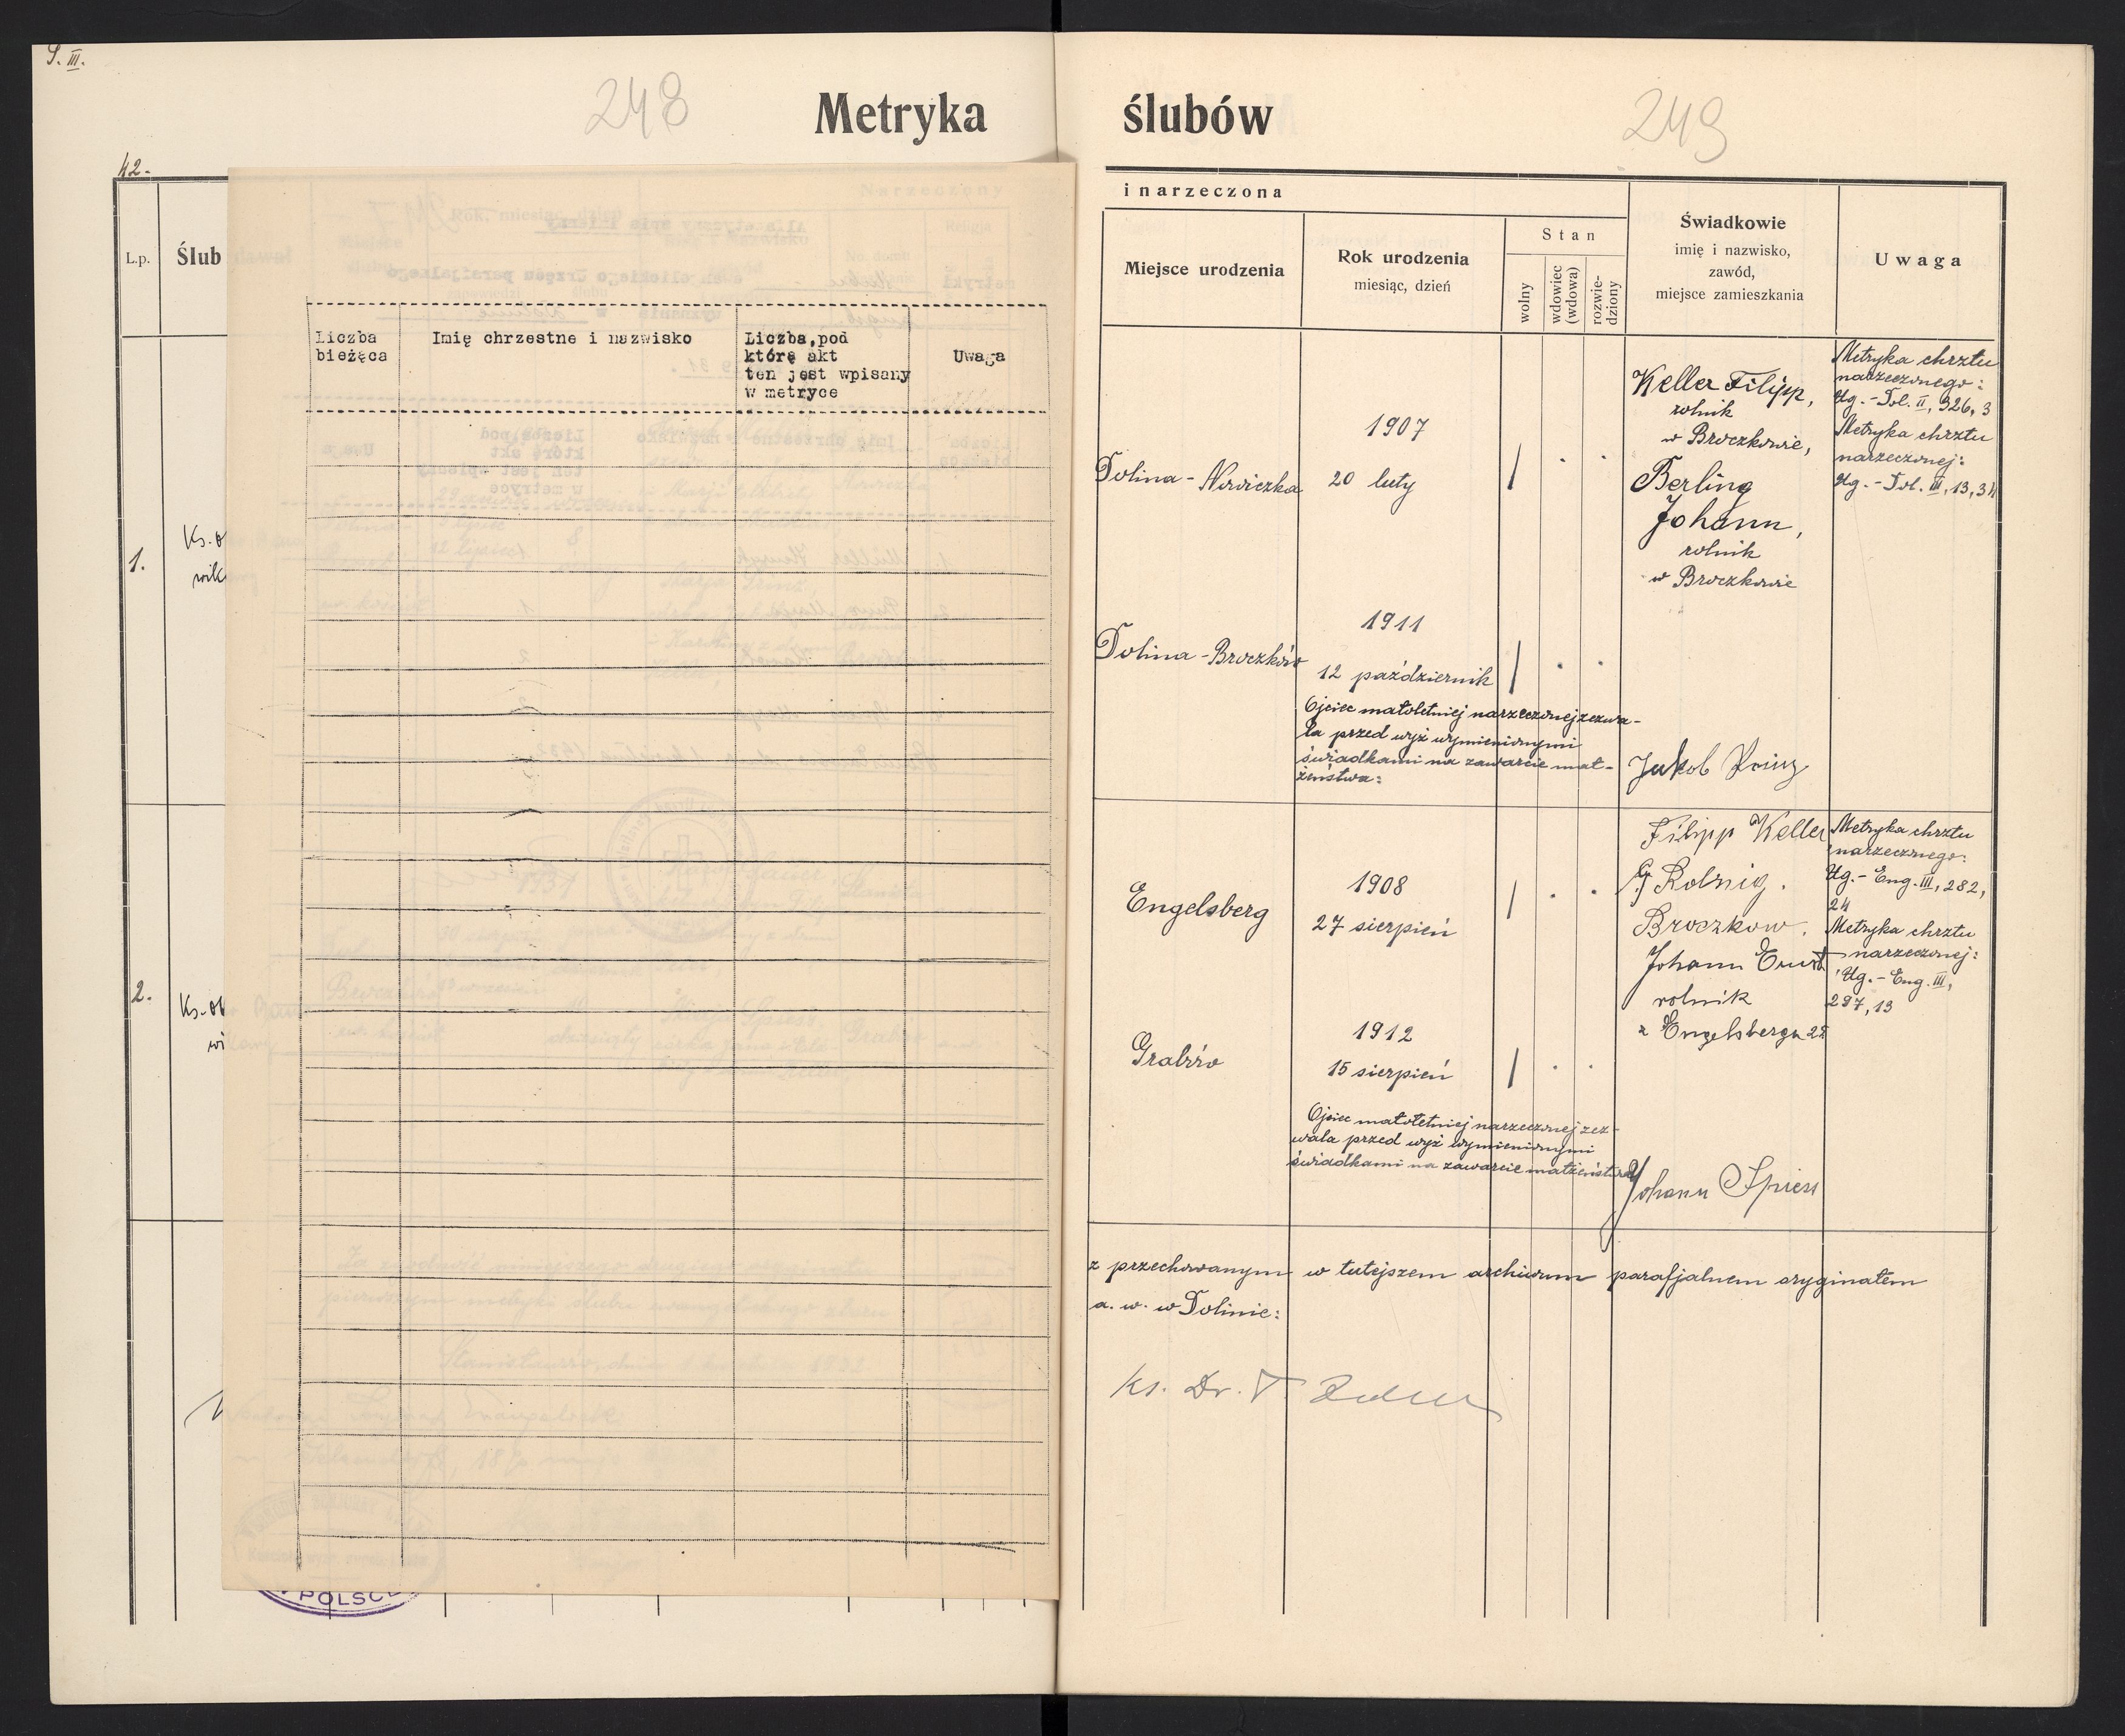 S. III.
248
Metryka
42.
L.p.
Ślub
1.
2.
Liczba
bieżąca
Imię chrzestne i nazwisko
Liczba, pod
którą akt
ten jest wpisany
w metryce
Uwaga
POLSC
ślubów
249
i narzeczona
Miejsce urodzenia
Rok urodzenia
miesiąc, dzień
Stan
wolny
wdowiec
(wdowa)
rozwie-
dziony
Świadkowie
imię i nazwisko,
zawód,
miejsce zamieszkania
Uwaga
Dolina - Nowiczka
1907
20 luty
Keller Filipp,
rolnik
w Broczkowie,
Berling
Johann,
rolnik
w Broczkowie
Metryka chrztu
narzeczonego:
Ug. - Dol. II, 326, 3
Metryka chrztu
narzeczonej:
Ug. - Dol. III, 13, 34
Dolina - Broczków
1911
12 październik
Ojciec małoletniej narzeczonej zezwa-
la przed wyż wymienionymi
świadkami na zawarcie mał-
żeństwa:
Jakob Prinz
Engelsberg
1908
27 sierpień
Filipp Keller
Rolnig.
Broczkow.
Johann Ernst
rolnik
z Engelsbergu 22
Metryka chrztu
narzeczonego:
Ug. - Eng. III, 282,
24
Metryka chrztu
narzeczonej:
Ug. - Eng. III,
297, 13
Grabów
1912
15 sierpień
Ojciec małoletniej narzeczonej zez-
wala przed wyż wymienionymi
świadkami na zawarcie małżeństwa:
Johann Spiess
z przechowanym w tutejszem archiwum parafjalnem oryginałem
a. w. w Dolinie:
Ks. Dr.